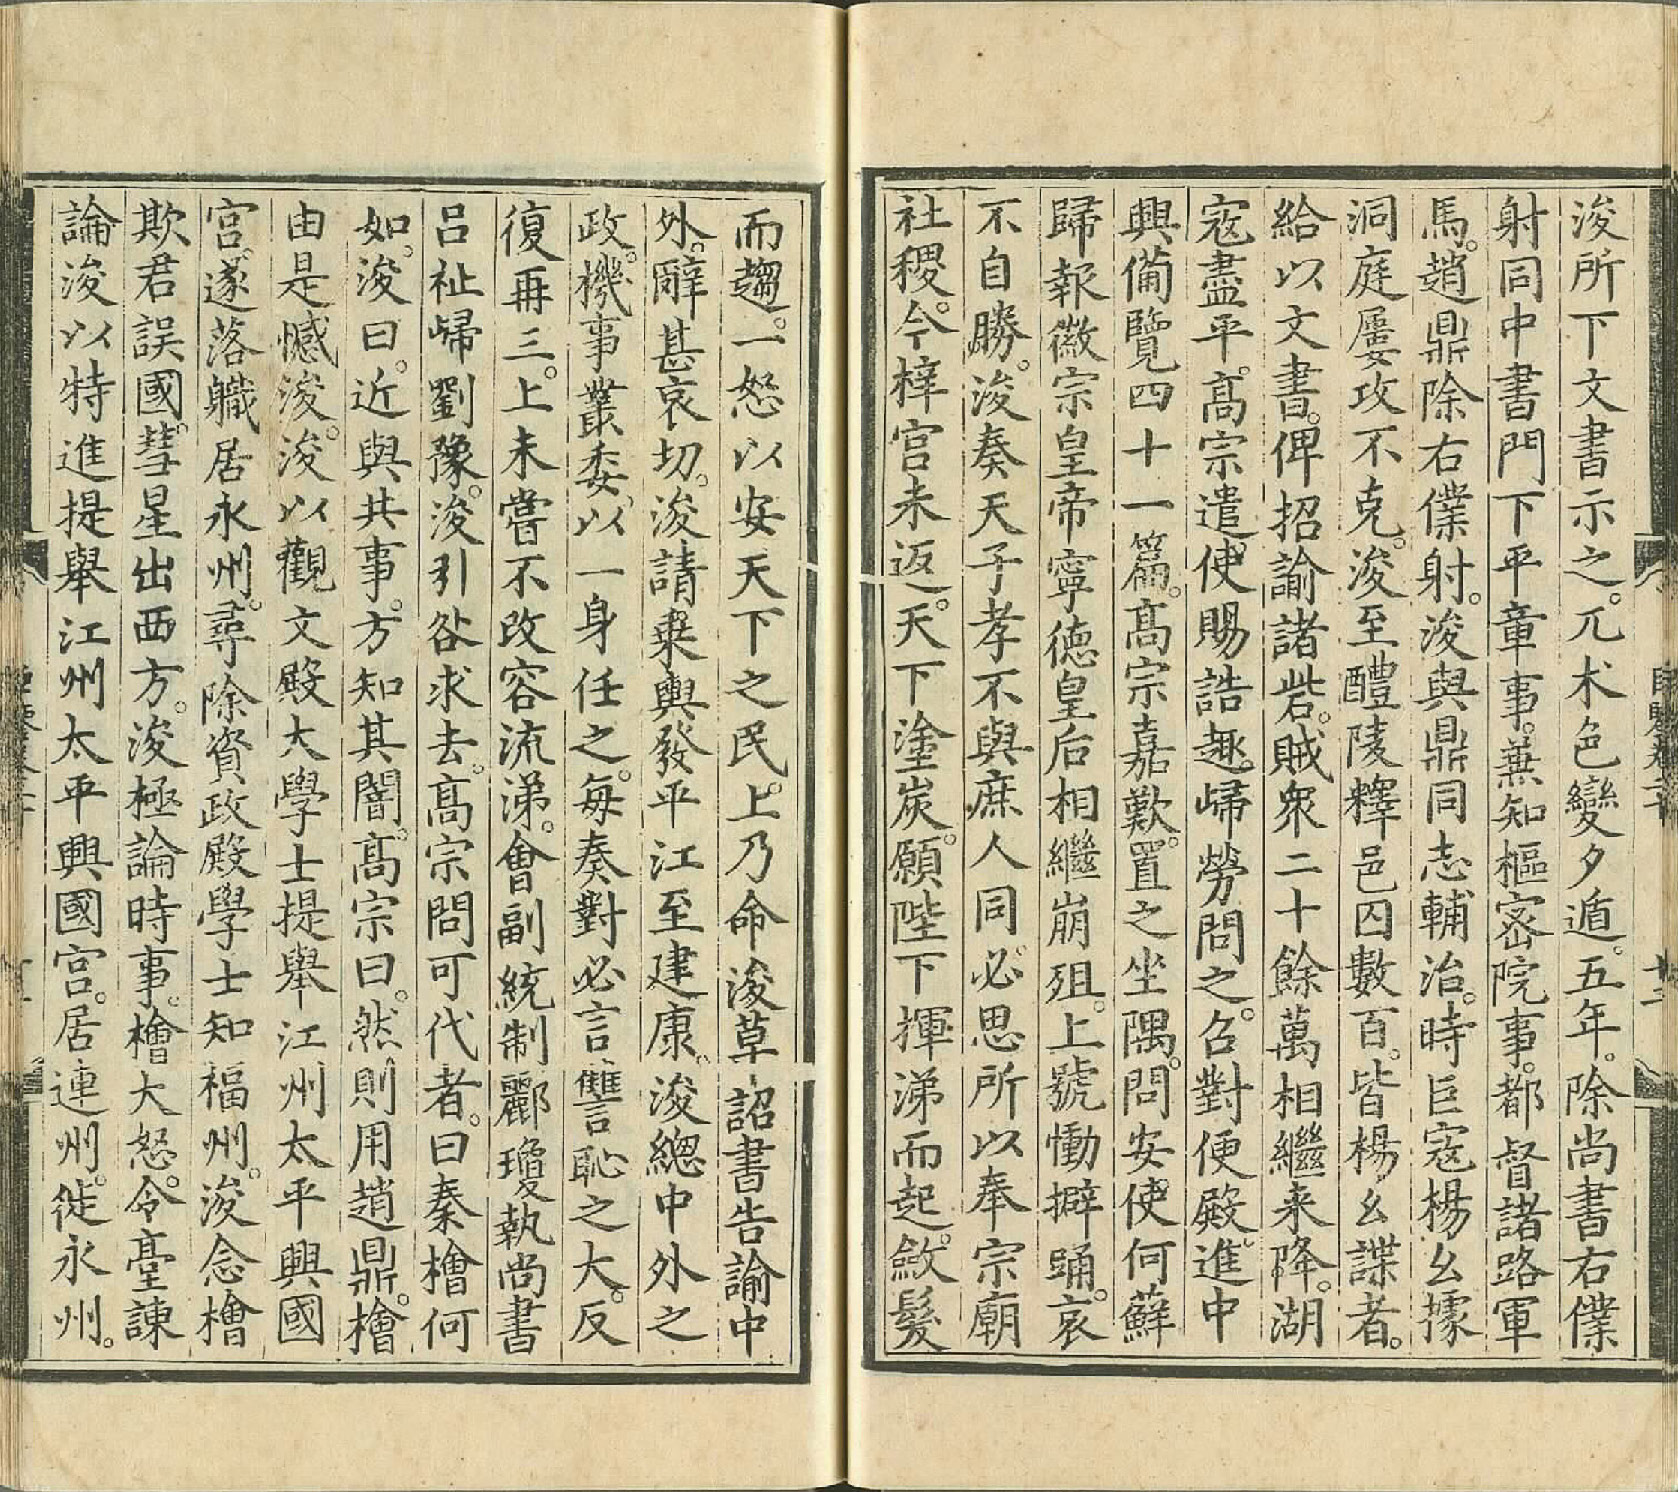 浚所下文書示之。兀术色變夕遁。五年。除尚書右僕
射同中書門下平章事。兼知樞密院事。都督諸路軍
馬。趙鼎除右僕射。浚與鼎同志輔治。時巨寇楊幺據
洞庭屢攻不克。浚至醴陵釋邑囚數百。皆楊幺諜者。
給以文書。俾招諭諸砦。賊衆二十餘萬相繼来降。湖
寇盡平。髙宗遣使賜詔趣歸勞問之。召對便殿。進中
興備覽四十一篇。髙宗嘉歎。置之坐隅。問安使何蘚
歸報徽宗皇帝寧德皇后相繼崩殂。上號慟擗踊。哀
不自勝。浚奏天子孝不與庶人同。必思所以奉宗廟
社稷。今梓宫未返。天下塗炭。願陛下揮涕而起。斂髮
而趨。一怒以安天下之民。上乃命浚草詔書告諭中
外。辭甚哀切。浚請乗輿發平江至建康。浚總中外之
政。機事叢委。以一身任之。每奏對必言讐恥之大。反
復再三。上未嘗不改容流涕。會副統制酈瓊執尚書
吕祉歸劉豫。浚引咎求去。髙宗問可代者。曰秦檜何
如。浚曰。近與共事。方知其闇。髙宗曰。然則用趙鼎。檜
由是憾浚。浚以觀文殿大學士提舉江州太平興國
宫。遂落職居永州。尋除資政殿學士知福州。浚念檜
欺君誤國。彗星出西方。浚極論時事。檜大怒。令臺諫
論浚以特進提舉江州太平興國宫。居連州。徙永州。